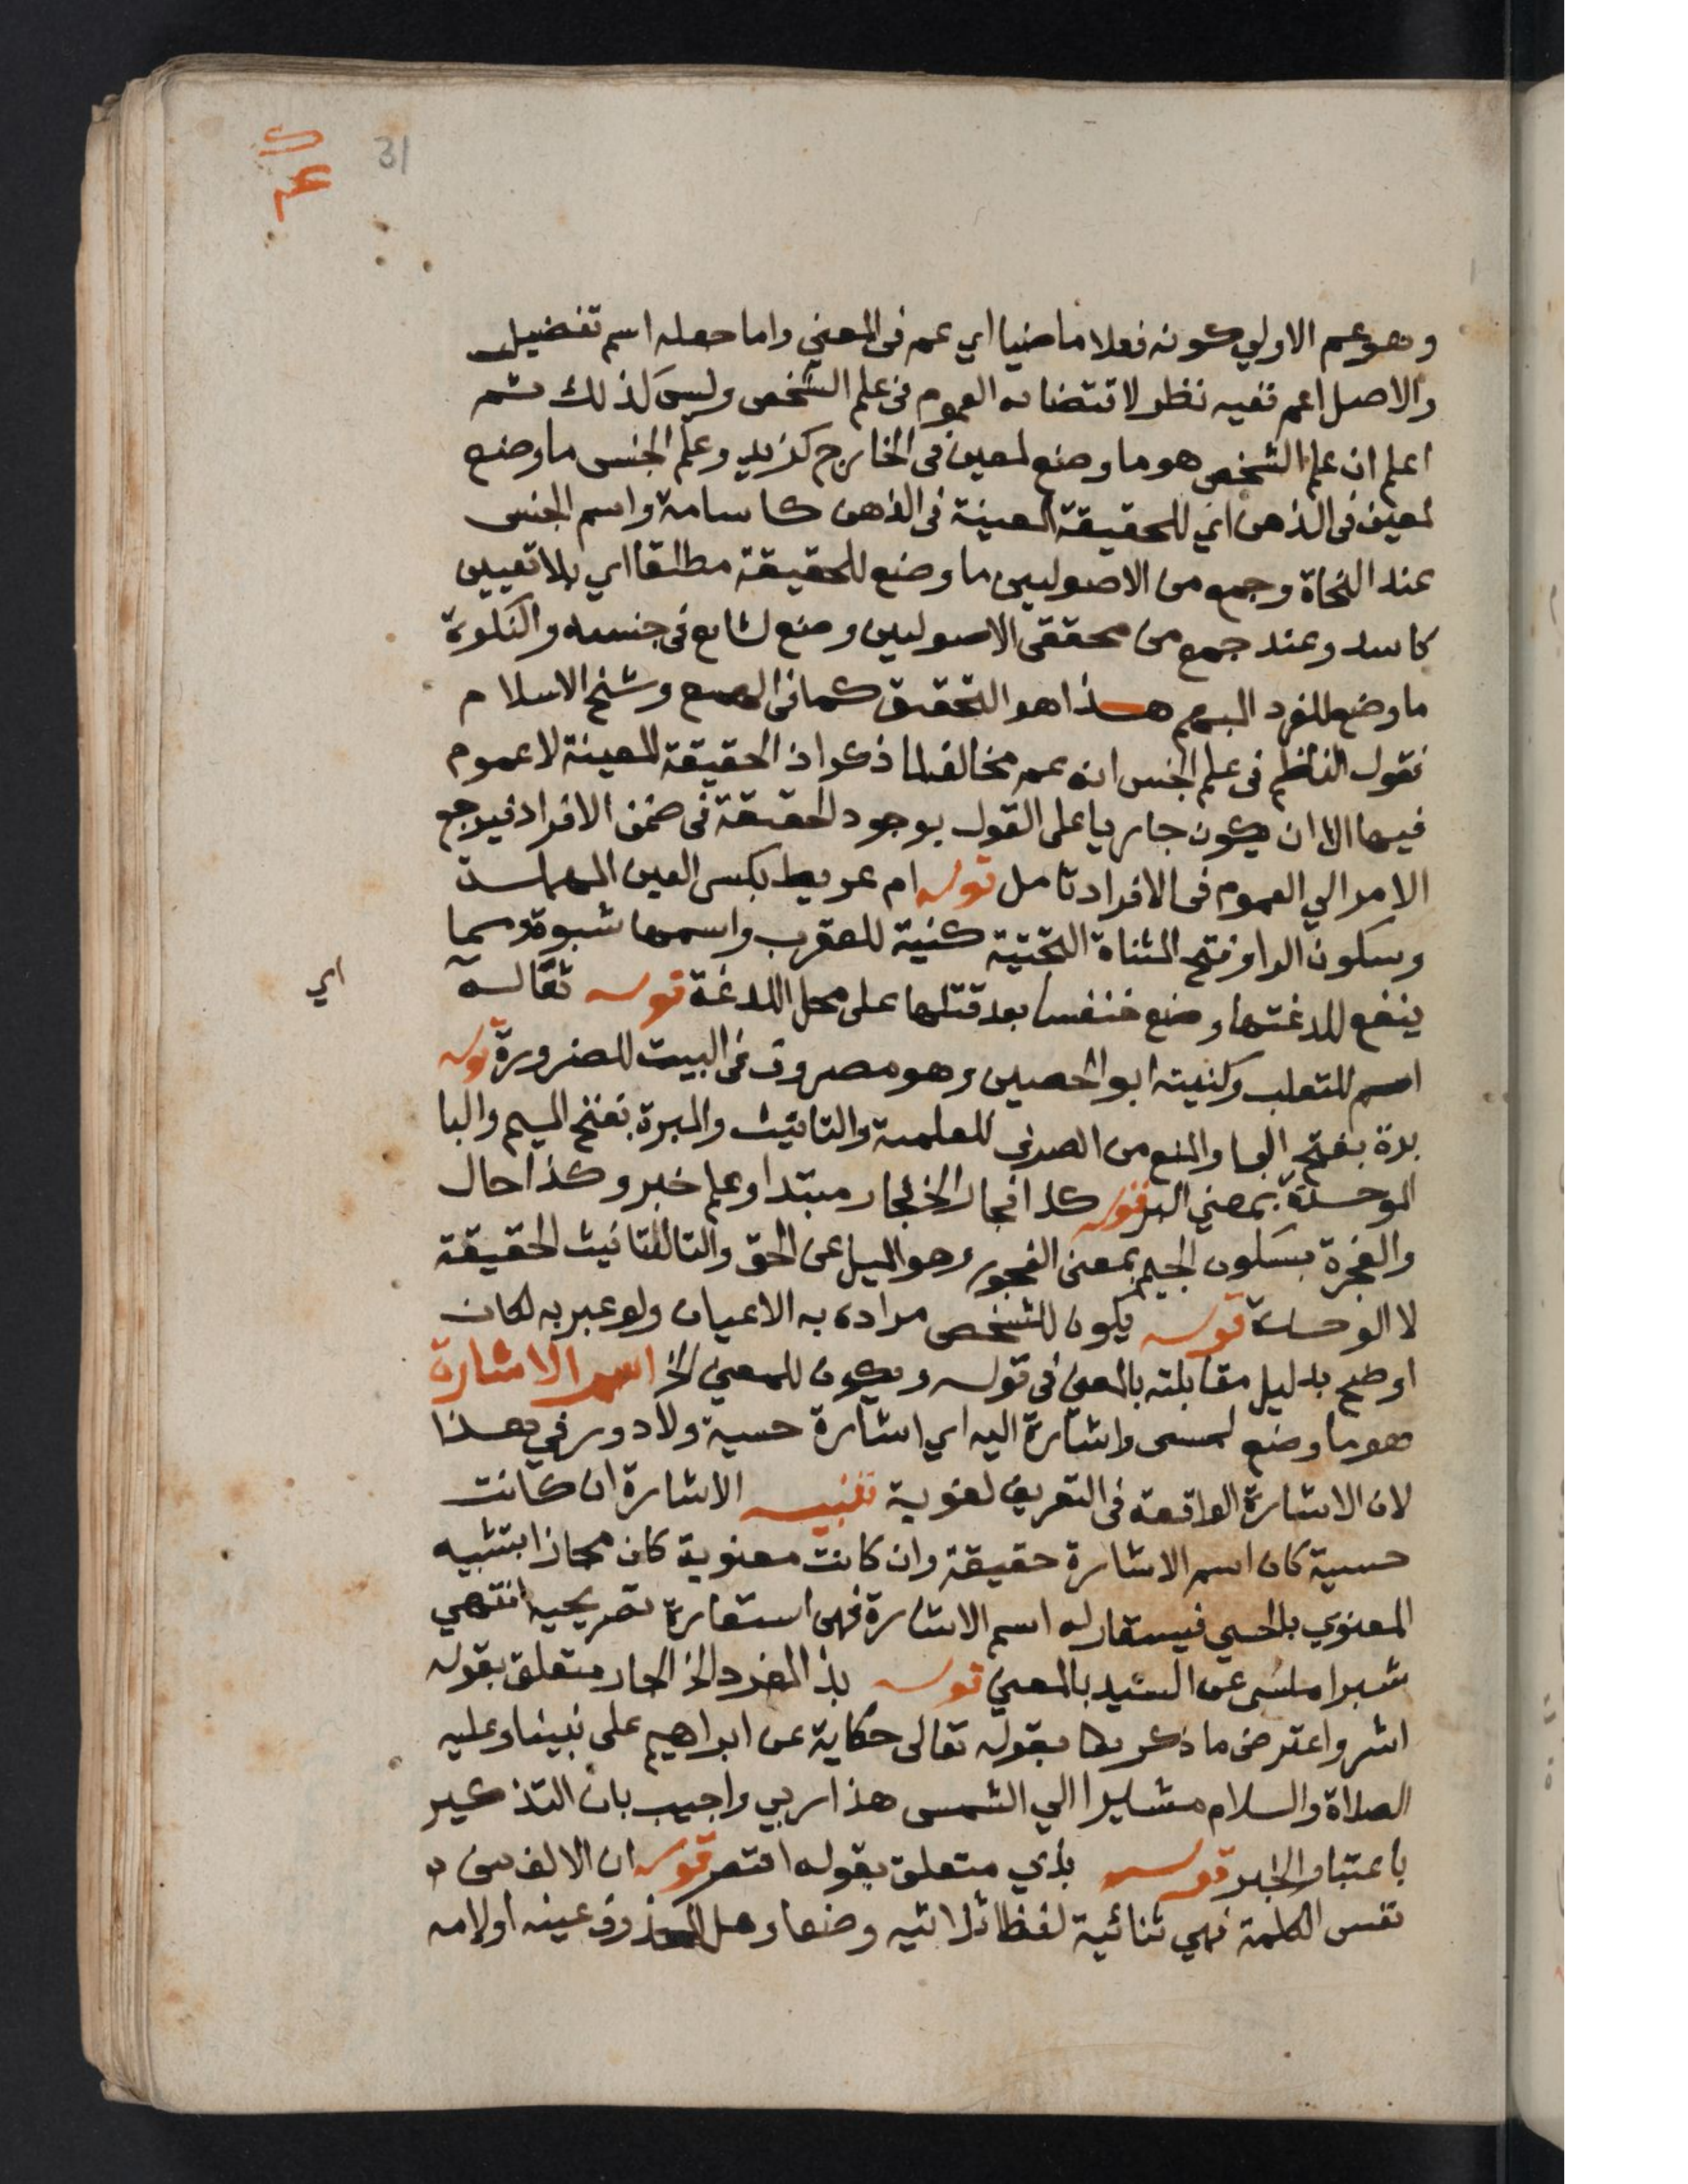 31
وهو عم الاولي كونه فعلا ماضيا اي عم في المعني واما جعله اسم تفضيل
والاصل اعم ففيه نظر لاقتضائه العموم في علم الشخص وليس كذلك ثم
اعلم ان علم الشخص هو ما وضع لمعين في الخارج كزيد وعلم الجنس ما وضع
لمعين في الذهن اي للحقيقة المعينة في الذهن كاسامة واسم الجنس
عند النحاة وجمع من الاصوليين ما وضع للحقيقة مطلقا اي بلا تعيين
كاسد وعند جمع من محققي الاصوليين وضع لشايع في جنسه والنكرة
ما وضع للفرد المبهم هذا هو التحقيق كما في وشيخ الاسلام
فقول الناظم في علم الجنس انه عم مخالف لما ذكر اذ الحقيقة المعينة لا عموم
فيها الا ان يكون جاريا على القول بوجود الحقيقة في ضمن الافراد فيرجع
الامر الي العموم في الافراد تامل قوله ام عريط بكسر العين المهملة
وسكون الرا وفتح المثناة التحتية كنية للعقرب واسمها شبوة ومما
ينفع للدغتها وضع خنفسا بعد قتلها على محل اللدغة قوله ثعالة
اي
اسم للثعلب وكنيته ابو الحصين وهو مصروف في البيت للضرورة قوله
برة بفتح البا والمنع من الصرف للعلمية والتانيث والمبرة بفتح الميم والبا
الموحدة بمعني البر قوله كذا فجار الخ فجار مبتدا وعلم خبر وكذا حال
والفجرة بسكون الجيم بمعنى الفجور وهو الميل عن الحق والتا لتانيث الحقيقة
لا الوحدة قوله يكون للشخص مراده به الاعيان ولو عبر به لكان
اوضح بدليل مقابلته بالمعني في قوله ويكون للمعني الخ اسم الاشارة
هو ما وضع لمسمى واشارة اليه اي اشارة حسية ولا دور في هذا
لان الاشارة الواقعة في التعريف لغوية تنبيه الاشارة ان كانت
حسية كان اسم الاشارة حقيقة وان كانت معنوية كان مجازا بتشبيه
المعنوي بالحسي فيستعار له اسم الاشارة فهي استعارة تصريحية انتهي
شبراملسي عن السيد بالمعني قوله بذا لمفرد الخ الجار متعلق بقوله
اشر واعترض ما ذكر بقوله تعالى حكاية عن ابراهيم على نبينا وعليه
الصلاة والسلام مشايرا الي الشمس هذا ربي واجيب بان التذكير
باعتبار الخبر قوله بذي متعلق بقوله اقتصر قوله ان الالف من
نفس الكلمة فهي ثنائية لفظا ثلاثية وضعا وهل المحذوف عينه او لامه